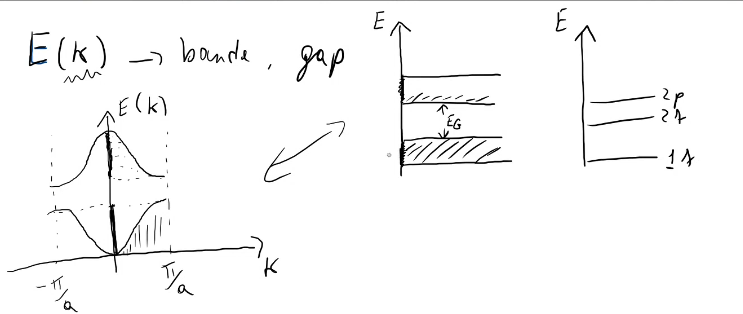 E(k) → bande, gap
E(k)
k
-π/a
π/a
E
E_G
E
2p
2s
1s